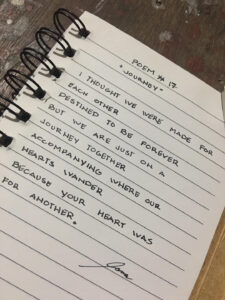 POEM # 17
"JOURNEY"
I THOUGHT WE WERE MADE FOR
EACH OTHER
DESTINED TO BE FOREVER
BUT WE ARE JUST ON A
JOURNEY TOGETHER
ACCOMPANYING WHERE OUR
HEARTS WANDER
BECAUSE YOUR HEART WAS
FOR ANOTHER.